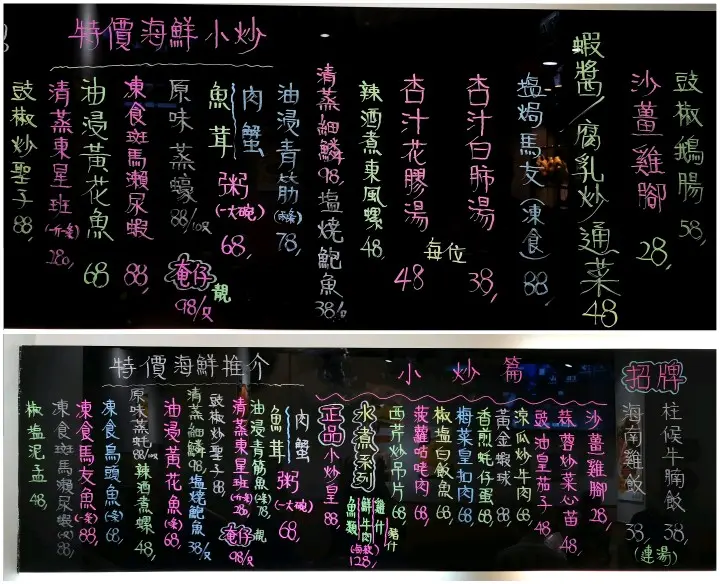 特價海鮮小炒
豉椒鵝腸 58,
沙薑雞腳 28,
蝦醬/腐乳炒通菜 48
塩焗馬友(凍食) 88,
杏汁白肺湯 38,
杏汁花膠湯 48
每位
辣酒煮東風螺 48,
清蒸細鱗 98,
塩燒鮑魚 38/只
油浸青筋(兩条) 78,
肉蟹
魚茸
粥(一大碗) 68,
原味蒸蠔 88/10只
奄仔 靚 98/只
凍食斑馬瀨尿蝦 88,
油浸黃花魚 68
清蒸東星斑(一条) 280,
豉椒炒聖子 88,
招牌
柱候牛腩飯 38,
海南雞飯 38,
(連湯)
小炒篇
沙薑雞腳 28,
蒜蓉炒菜心苗 48,
豉油皇茄子 48
涼瓜炒牛肉 68,
黃金蝦球 88,
香煎蚝仔蛋 68,
梅菜皇扣肉 68,
椒塩白飯魚 68,
菠蘿咕咾肉 68,
西芹炒吊片 68
水煮系列
雞什
豬什
鮮牛肉
魚類
(每款) 128,
正品小炒皇 88,
特價海鮮推介
肉蟹
魚茸
粥(一大碗) 68,
油浸青筋魚(条) 78,
靚 奄仔 98/只
清蒸東星斑(一条) 28
豉椒炒聖子 88,
清蒸細鱗 98,
塩燒鮑魚 38/只
油浸黃花魚(条) 68,
原味蒸蚝 88/10只
辣酒煮螺 48,
凍食烏頭魚(条) 68,
凍食馬友魚(一条) 88
凍食斑馬瀨尿蝦 88,
椒塩泥孟 48,